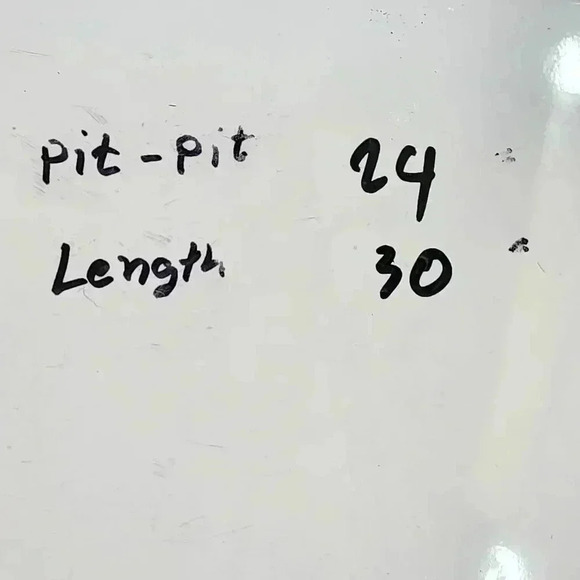 Pit - Pit 24
Length 30